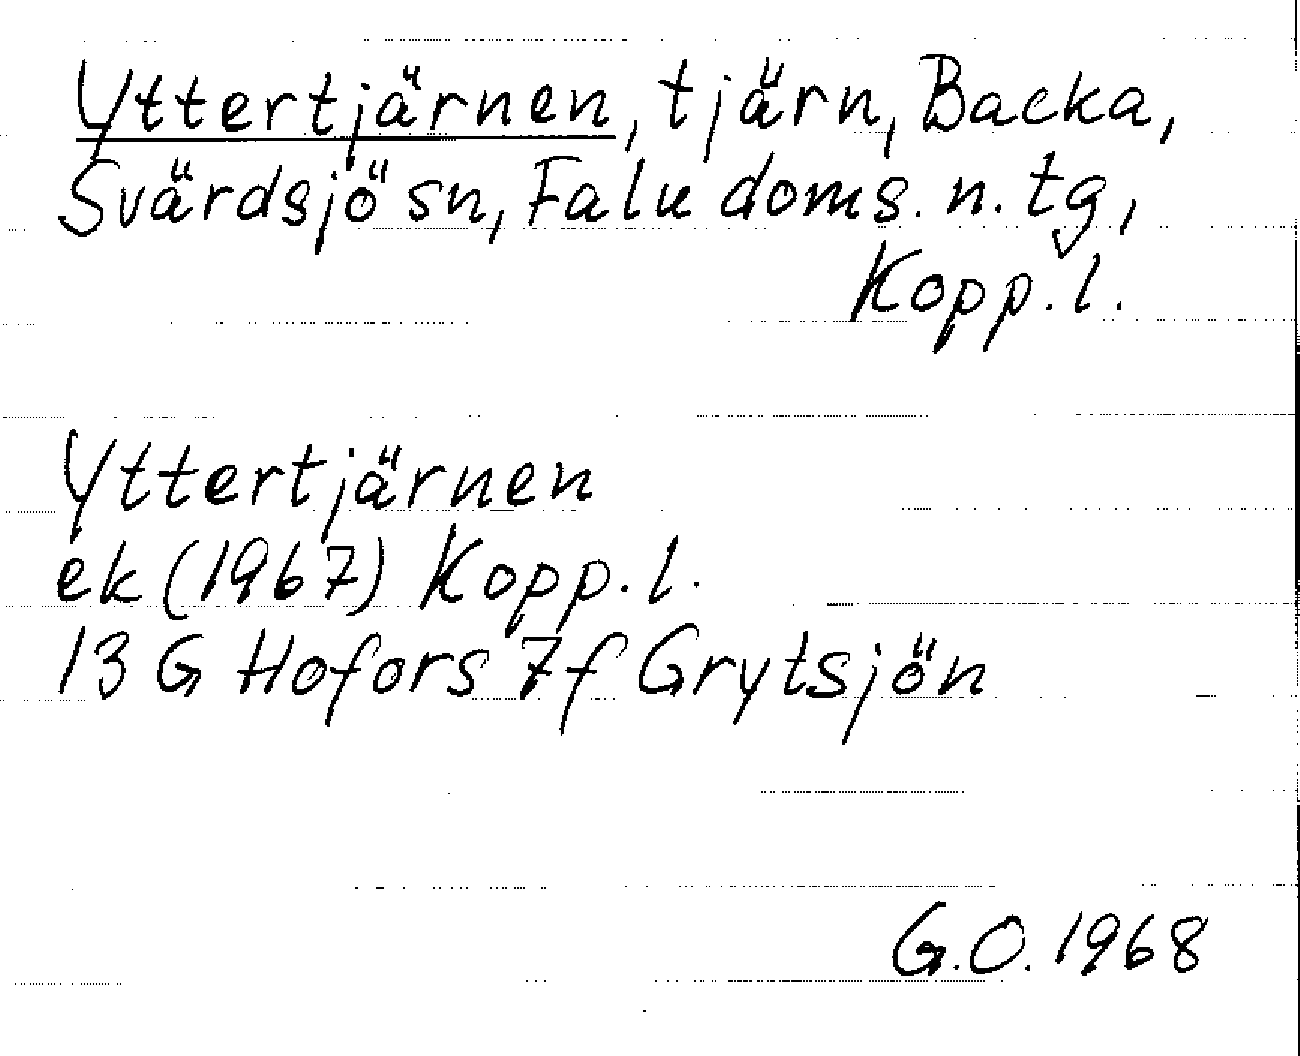 Yttertjärnen, tjärn, Backa,
Svärdsjö sn, Falu doms. n. tg,
Kopp. l.
Yttertjärnen
ek (1967) Kopp. l.
13 G Hofors 7f Grytsjön
G.O. 1968